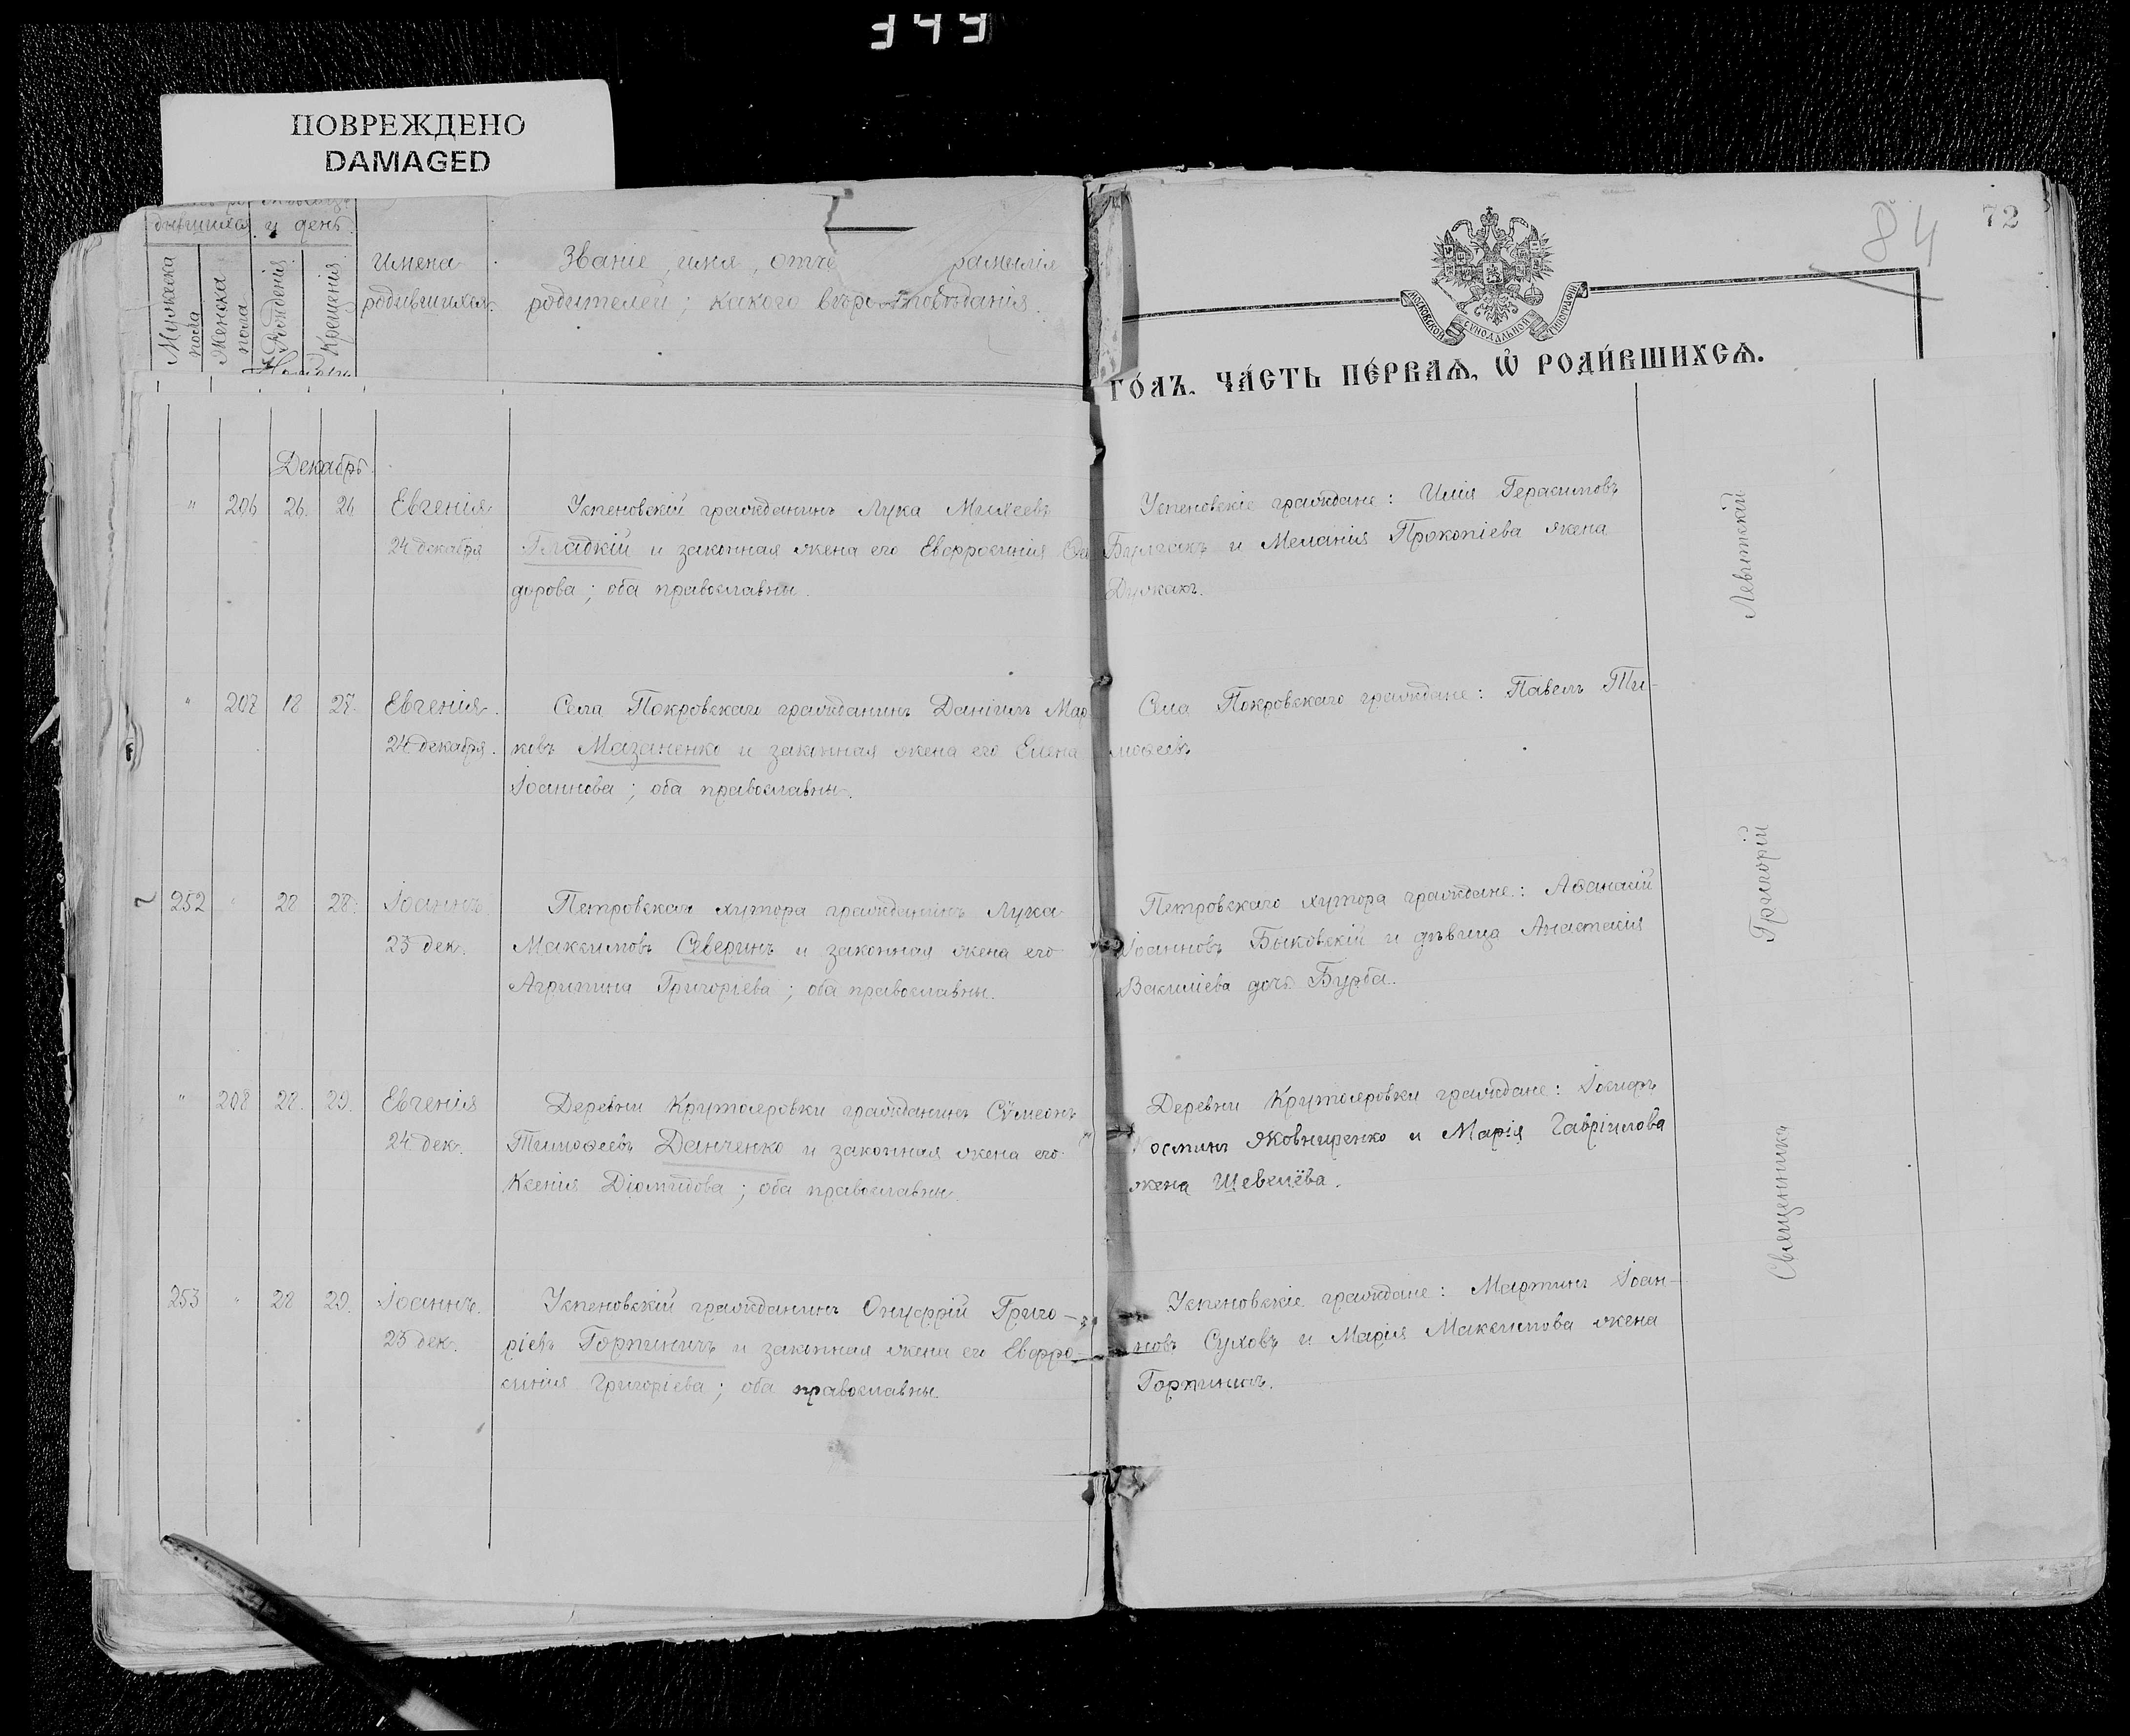 349
ПОВРЕЖДЕНО
DAMAGED
72
84
дившихся и день.
Мужеска пола
Женска пола
Рожденія
Крещенія
Имена
родившихся.
Званіе, имя, отче фамилія
родителей; какого вѣроисповѣданія.
МОСКОВСКОЙ СѴНОДАЛЬНОЙ ТИПОГРАФІИ
ГО́ДЪ. ЧА́СТЬ ПЕ́РВАѦ, Ѡ҆ РОДИ́ВШИХСѦ.
Декабрь
" 206 26. 26 Евгенія
24 декабря
Успеновскій гражданинъ Лука Моѵсеевъ
Гладкій и законная жена его Евфросинія Ѳео
дорова; оба православны.
Успеновскіе граждане: Илія Герасимовъ
Булгакъ и Меланія Прокопіева жена
" 207 18 27. Евгенія.
24 декабря.
Села Покровскаго гражданинъ Даніилъ Мар
ковъ Мазаненко и законная жена его Елена
Іоаннова; оба православны.
Села Покровскаго граждане: Павелъ Ти-
моѳеевъ
252 " 28 28. Іоаннъ
25 дек.
Петровскаго хутора гражданинъ Лука
Максимовъ Северинъ и законная жена его
Агрипина Григоріева; оба православны.
Петровскаго хутора граждане: Аѳанасій
Іоанновъ Быковскій и дѣвица Анастасія
Василіева дочь Бурба.
" 208 28. 29. Евгенія
24 дек.
Деревни Крутояровки гражданинъ Сѵмеонъ
Тимоѳеевъ Данченко и законная жена его
Ксенія Діомидова; оба православны.
Деревни Крутояровки граждане: Іосифъ
Яковниренко и Марія Гавріилова
жена Шевелёва.
253 " 28 29. Іоаннъ.
25 дек.
Успеновскій гражданинъ Онуфрій Григо-
ріевъ Горпиничъ и законная жена его Евфро-
синія Григоріева; оба православны.
Успеновскіе граждане: Мартинъ Іоан-
новъ Суховъ и Марія Максимова жена
Горпиничъ.
Священникъ Григорій Левитскій